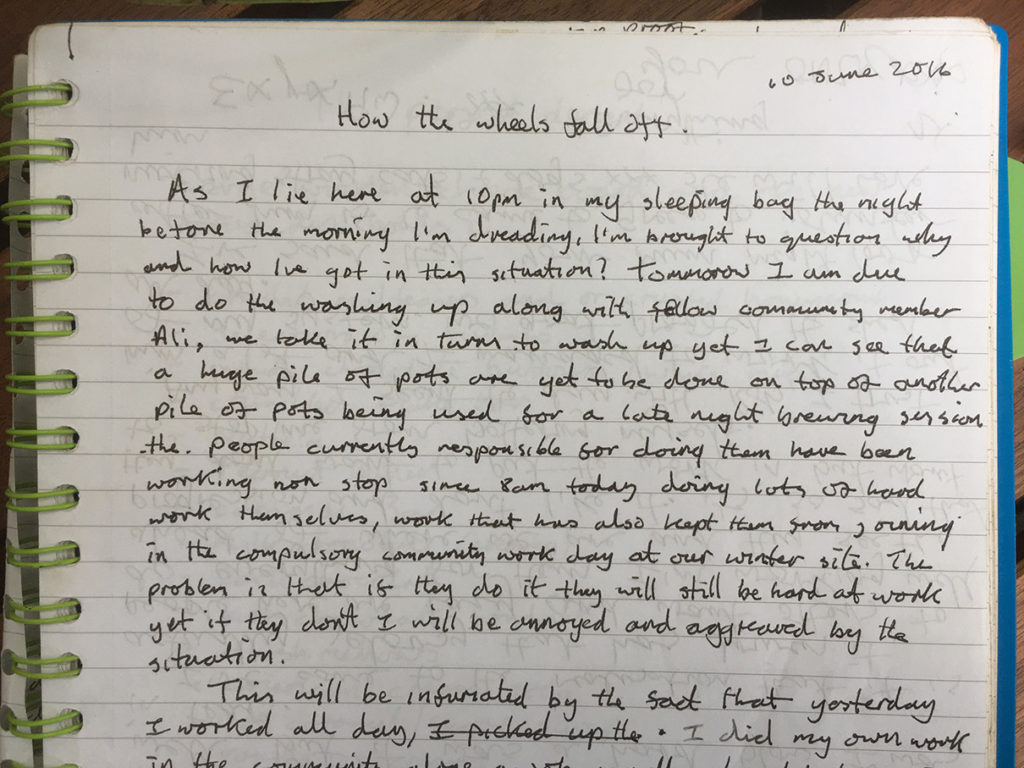 10 June 2016
How the wheels fall off.
As I lie here at 10pm in my sleeping bag the night
before the morning I'm dreading, I'm brought to question why
and how I've got in this situation? Tommorow I am due
to do the washing up along with fellow community member
Ali, we take it in turns to wash up yet I can see that
a huge pile of pots are yet to be done on top of another
pile of pots being used for a late night brewing session
the. people currently responsible for doing them have been
working non stop since 8am today doing lots of hard
work themselves, work that has also kept them from joining
in the compulsory community work day at our winter site. The
problem is that if they do it they will still be hard at work
yet if they don't I will be annoyed and aggreaved by the
situation.
This will be infuriated by the fact that yesterday
I worked all day, I picked up the . I did my own work
in the community